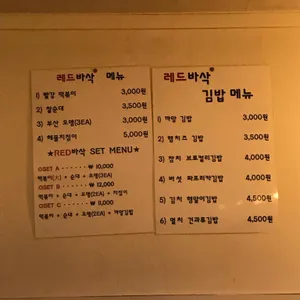 레드바삭 메뉴
1) 빨강 떡볶이 3,000원
2) 찰순대 3,500원
3) 부산 오뎅(3EA) 3,000원
4) 해물지짐이 5,000원
★RED바삭 SET MENU★
SET A ------ ₩ 10,000
떡볶이(大) + 순대 + 오뎅(3EA)
SET B ------ ₩ 12,000
떡볶이 + 순대 + 오뎅(2EA) + 지짐이
SET C ------ ₩ 11,000
떡볶이 + 순대 + 오뎅(2EA) + 야망김밥
레드바삭
김밥 메뉴
1) 야망 김밥 3,000원
2) 햄치즈 김밥 3,500원
3) 참치 브로컬리김밥 4,000원
4) 버섯 파프리카김밥 4,000원
5) 김치 김밥 4,500원
6) 멸치 견과류김밥 4,500원